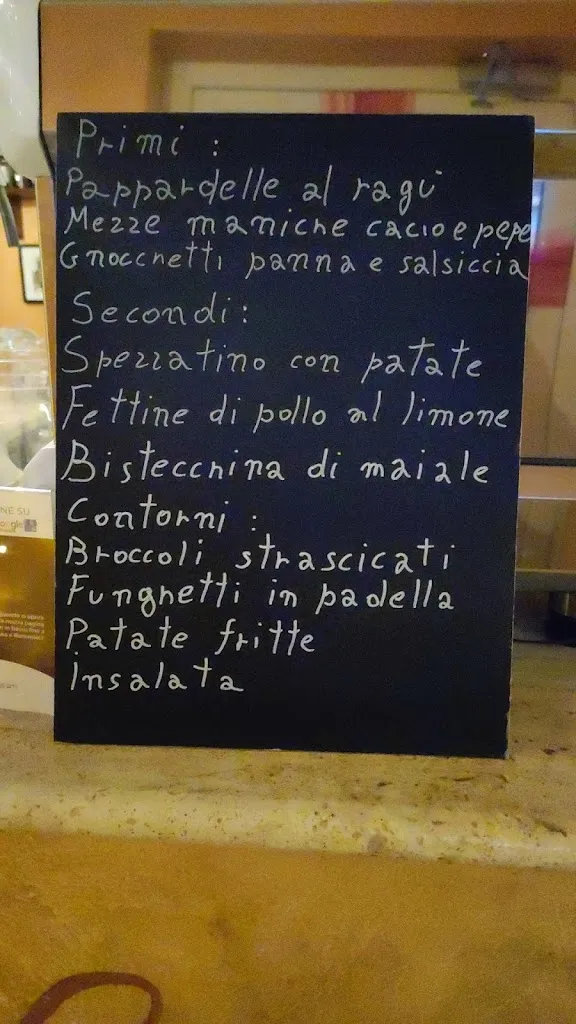 Primi :
Pappardelle al ragù
Mezze maniche cacio e pepe
Gnocchetti panna e salsiccia
Secondi :
Spezzatino con patate
Fettine di pollo al limone
Bistecchina di maiale
Contorni :
Broccoli strascicati
Funghetti in padella
Patate fritte
Insalata
NE SU